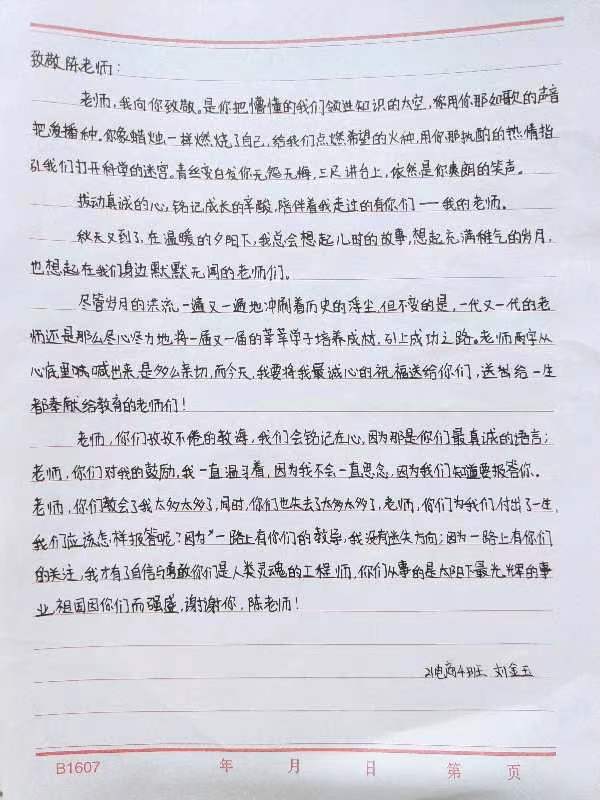 致敬陈老师:
老师,我向你致敬。是你把懵懂的我们领进知识的太空,你用你那如歌的声音
把爱播种,你象蜡烛一样燃烧了自己,给我们点燃希望的火种,用你那执酌的热情指
引我们打开科学的迷宫。青丝变白发你无怨无悔,三尺讲台上,依然是你爽朗的笑声。
拨动真诚的心,铭记成长的辛酸,陪伴着我走过的有你们——我的老师。
秋天又到了,在温暖的夕阳下,我总会想起儿时的故事,想起充满稚气的岁月,
也想起在我们身边默默无闻的老师们。
尽管岁月的洪流一遍又一遍地冲刷着历史的浮尘,但不变的是,一代又一代的老
师还是那么尽心尽力地,将一届又一届的莘莘学子培养成材,引上成功之路。老师两字从
心底里喊出来,是多么亲切,而今天,我要将我最诚心的祝福送给你们,送给给一生
都奉献给教育的老师们!
老师,你们孜孜不倦的教诲,我们会铭记在心,因为那是你们最真诚的语言;
老师,你们对我的鼓励,我一直温习着,因为我不会一直思念,因为我们知道要报答你。
老师,你们教会了我太多太多了,同时,你们也失去了太多太多了,老师,你们为我们付出了一生,
我们应该怎样报答呢?因为"一路上有你们的教导,我没有迷失方向;因为一路上有你们
的关注,我才有了自信与勇敢你们是人类灵魂的工程师,你们从事的是太阳下最光辉的事
业,祖国因你们而强盛,谢谢你,陈老师!
21电商4班 刘金玉
B1607 年 月 日 第 页